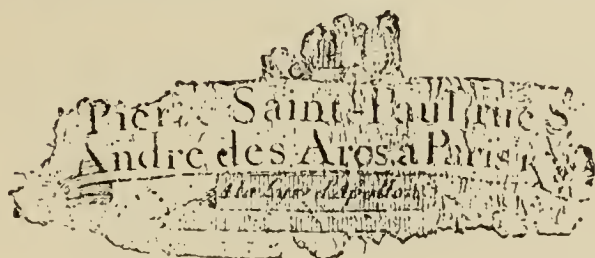 Pierre Saint-Paul, rue S
André des Arcs, a Paris